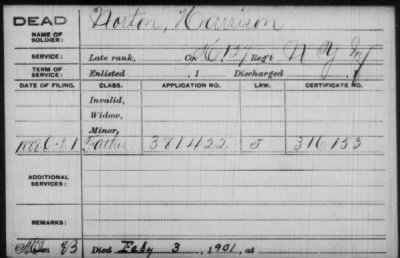 DEAD
NAME OF SOLDIER: Norton, Harrison
SERVICE: Late rank, Co K, 157 Reg't N Y Inf
TERM OF SERVICE: Enlisted , 1 Discharged , 1
DATE OF FILING. CLASS. APPLICATION NO. LAW. CERTIFICATE NO.
Invalid,
Widow,
Minor,
1 Father 381422 J 316153
ADDITIONAL SERVICES:
REMARKS:
Died Feby 3, 1901, at